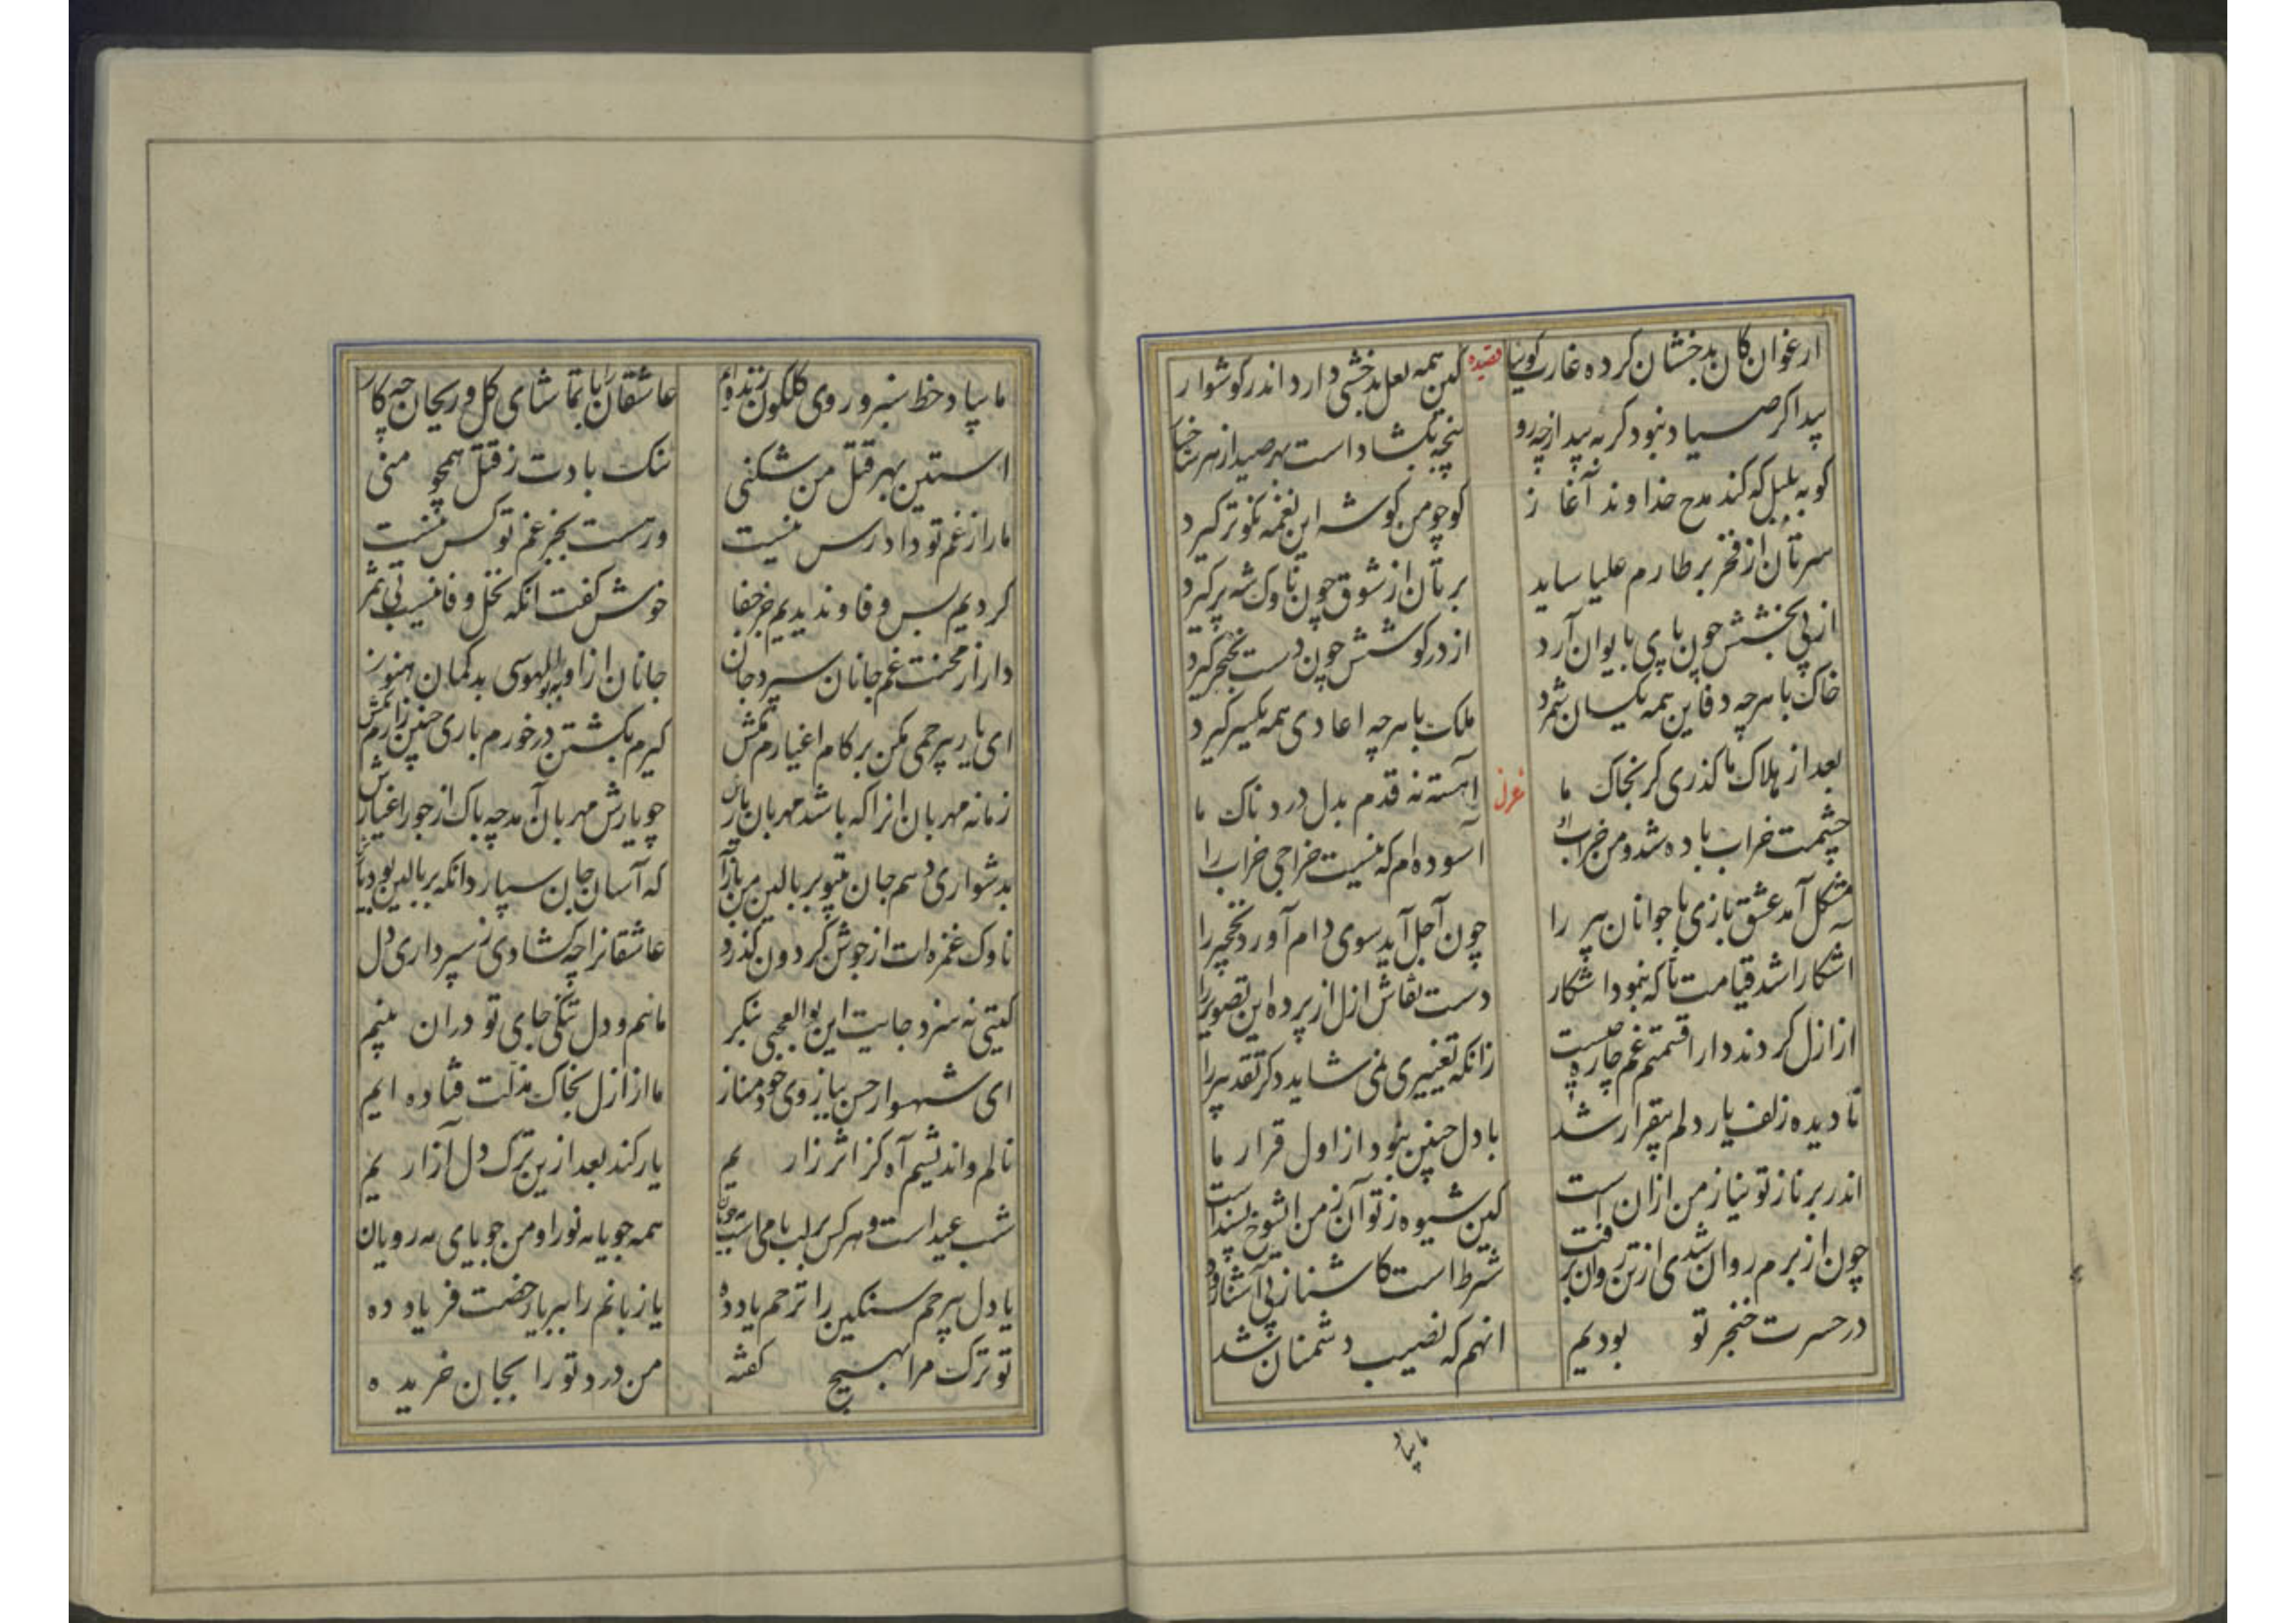 ارغوان کان بدخشان کرده غارت کوئیا قصیده کین همه لعل بدخشی دارد اندر کوشوار
پیدا کر صیاد نبود کربه پید از چه رو پنجه بکشاداست بهر صید از هر شاخسار
کو به بلبل که کند مدح خداوند آغاز کو چو من کوشه این نغمه نکوتر کیرد
سرتان از فخر بر طارم علیا ساید برتان از شوق چون ناوک شه پر کیرد
از پی بخشش چون پای بایوان آرد از در کوشش چون دست بخنجر کیرد
خاک با هرچه دفاین همه یکسان شمرد ملک با هرچه اعادی همه یکسر کیرد
بعد از هلاک ما کذری کر بخاک ما غزل آهسته نه قدم بدل دردناک ما
چشمت خراب باده شد و من خراب او آسوده ام که نیست خراجی خراب را
مشکل آمد عشق بازی با جوانان پیر را چون اجل آید سوی دام آورد نخجیر را
اشکارا شد قیامت تا که بنمود اشکار دست نقاش ازل از پرده این تصویر را
از ازل کردند دارا قسمتم غم چاره چیست زانکه تغییری نمی شاید دکر تقدیر را
نادیده زلف یار دلم بیقرار شد با دل چنین نبود از اول قرار ما
اندر بر ناز تو نیاز من ازان است کین شیوه ز تو آن ز من ایشوخ پسنداست
چون از برم روان شدی از تن روان برفت شرط است کاشنا ز پی آشنا رود
در حسرت خنجر تو بودیم انهم که نصیب دشمنان شد
ما بیاد
ما بیاد خط سبز و روی کلکون زنده ایم عاشقان را با تماشای کل و ریحان چه کار
استین بهر قتل من شکنی ننک بادت ز قتل همچو منی
ما را ز غم تو دادرس نیست ور هست بجز غم تو کس نیست
کردیم بس وفا و ندیدیم جز جفا خوش کفت انکه نخل وفا نیست بی ثمر
دارا ز محنت غم جانان سپرد جان جانان ازاو به بوالهوسی بدکمان هنوز
ای یار بیرحمی مکن بر کام اغیارم مکش کیرم بکشتن درخورم باری چنین زارم مکش
زمانه مهربان انرا که باشد مهربان یارش چو یارش مهربان آمد چه باک از جور اغیارش
بدشواری دهم جان بیتو بر بالین من بازآ که آسان جان سپارد انکه بر بالین بود یارش
ناوک غمزه ات از جوش کردون کذرد عاشقانرا چه کشادی ز سپرداری دل
کیتی نه سزد جایت این بوالعجبی بنکر مانم و دل تنکی جای تو دران بینم
ای شهسوار حسن ببازوی خود مناز ما از ازل بخاک مذلت فتاده ایم
نالم و اندیشیم آه کز اثر زاریم یار کند بعد ازین ترک دل آزاریم
شب عید است و هر کس بر لب بامی است مه جویان همه جویا به نور او من جویای مه رویان
یا دل بیرحم سنکین را ترحم یاد ده یا زبانم را ببر یا رخصت فریاد ده
تو ترک مرا بهیچ کفته من درد تو را بجان خریده